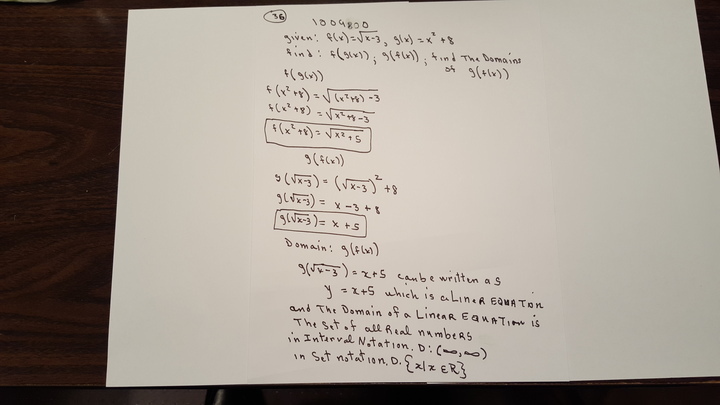 36
1009800
given: f(x)=√x-3, g(x)=x²+8
find: f(g(x)); g(f(x)); find The Domains
of g(f(x))
f(g(x))
f(x²+8)=√(x²+8)-3
f(x²+8)=√x²+8-3
f(x²+8)=√x²+5
g(f(x))
g(√x-3)=(√x-3)²+8
g(√x-3)= x-3+8
g(√x-3)= x+5
Domain: g(f(x))
g(√x-3)=x+5 can be written as
y = x+5 which is a LineR EQUATION
and The Domain of a Linear EQUATION is
The set of all Real numbers
in Interval Notation, D:(∞,∞)
in Set notation, D.{x|x∈R}